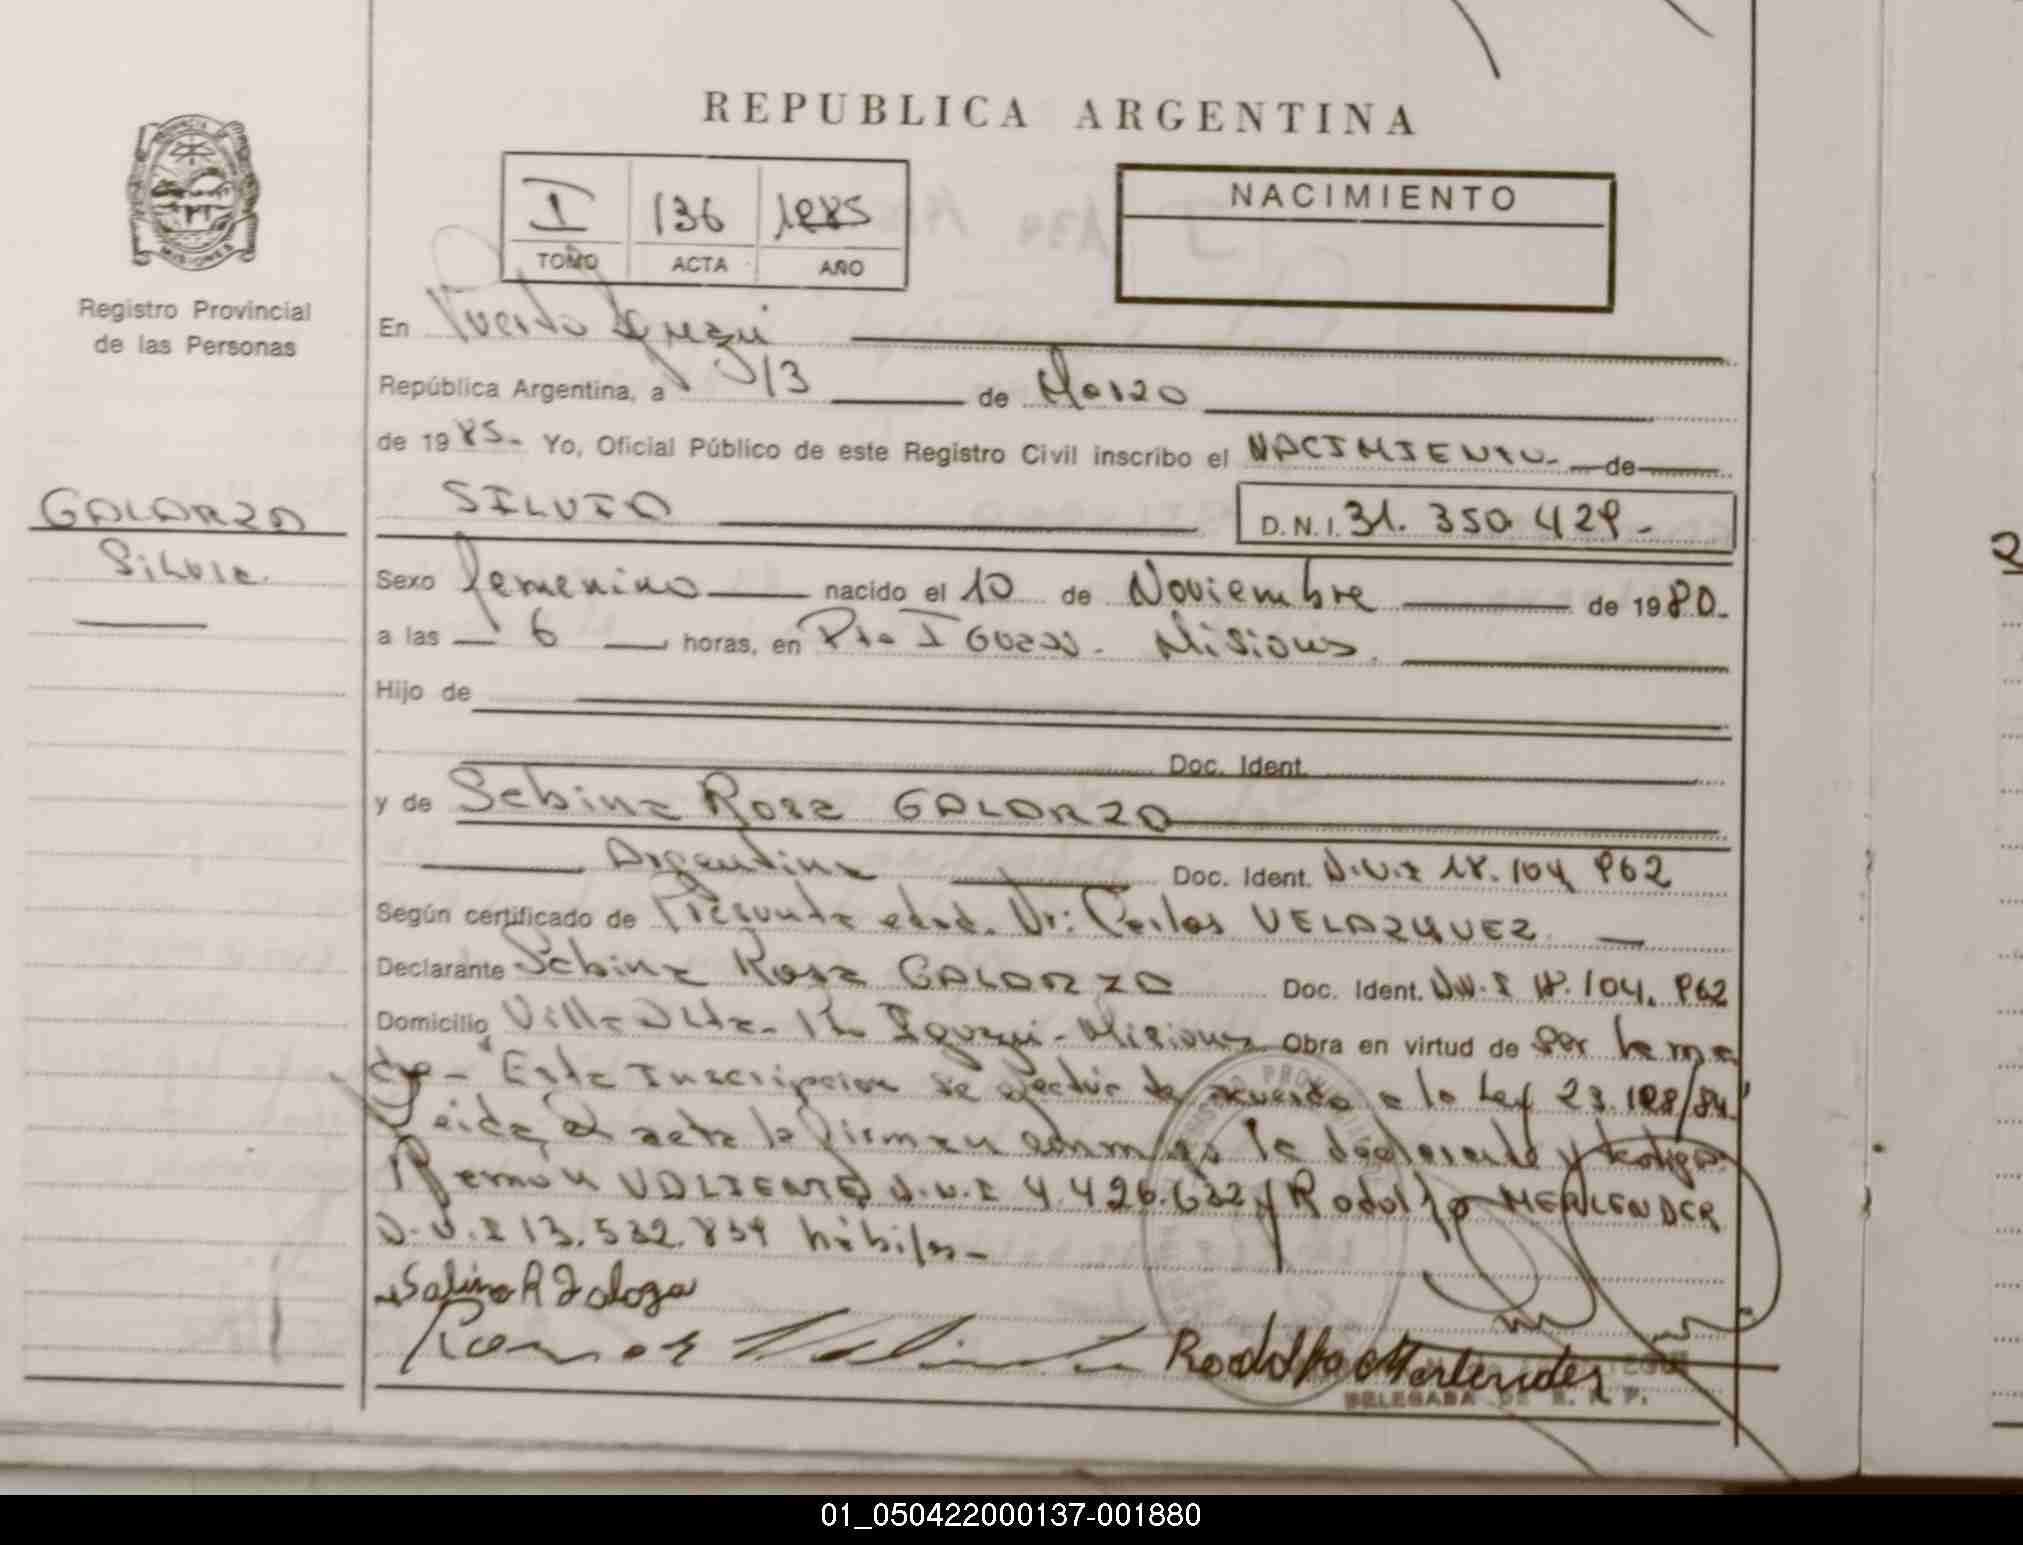 REPUBLICA ARGENTINA
I 136 1985
TOMO ACTA AÑO
NACIMIENTO
PROVINCIA MISIONES
Registro Provincial
de las Personas
GALARZA
Silvia
En Puerto Iguazú
República Argentina, a 13 de Marzo
de 1985- Yo, Oficial Público de este Registro Civil inscribo el NACIMIENTO- de
SILVIA D.N.I. 31. 350 429-
Sexo femenino nacido el 10 de Noviembre de 1980-
a las 6 horas, en Pto Iguazú- Misiones.
Hijo de
Doc. Ident.
y de Sabina Rosa GALARZA
Argentina Doc. Ident. D.N.I 18.104 962
Según certificado de Presunta edad. Dr: Carlos VELAZQUEZ
Declarante Sabina Rosa GALARZA Doc. Ident. D.N.I 18.104. 962
Domicilio Villa Alta- Iguazú- Misiones Obra en virtud de Ser la ma
dre- Esta Inscripcion se efectúa de acuerdo a la Ley 23.128/84.
Leida el acta la firman conmigo la declarante y testigos
Ramón VALIENTE D.N.I 4.426.632 y Rodolfo MERLENDER
D.N.I 13.532.839 hábiles-
Rodolfo Merlender
DELEGADA DE R. P.
01_050422000137-001880